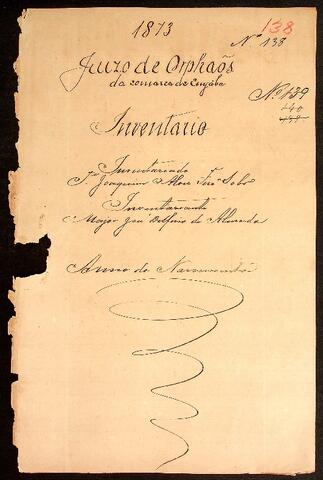 1873
138
Nº 138
Juizo de Orphaõs
da comarca de Cuyaba
Nº 139
140
Inventario
Inventariado
Joaquim Alves Frª Sobº
Inventariante
Major José Delfino de Almeida
Anno do Nascimento